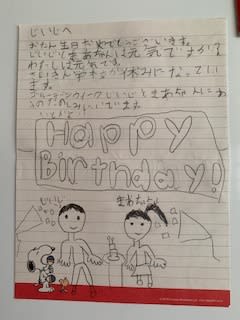 じいじへ
おたん生日おめでとうございます。
じいじとまあちゃんは元気ですか?
わたしは元気です。
さいきん学校が休みになっています。
ゴールデンウィークじいじとまあちゃんにあ
うのたのしみにしています。
Happy
Birthday!
じいじ
まあちゃん